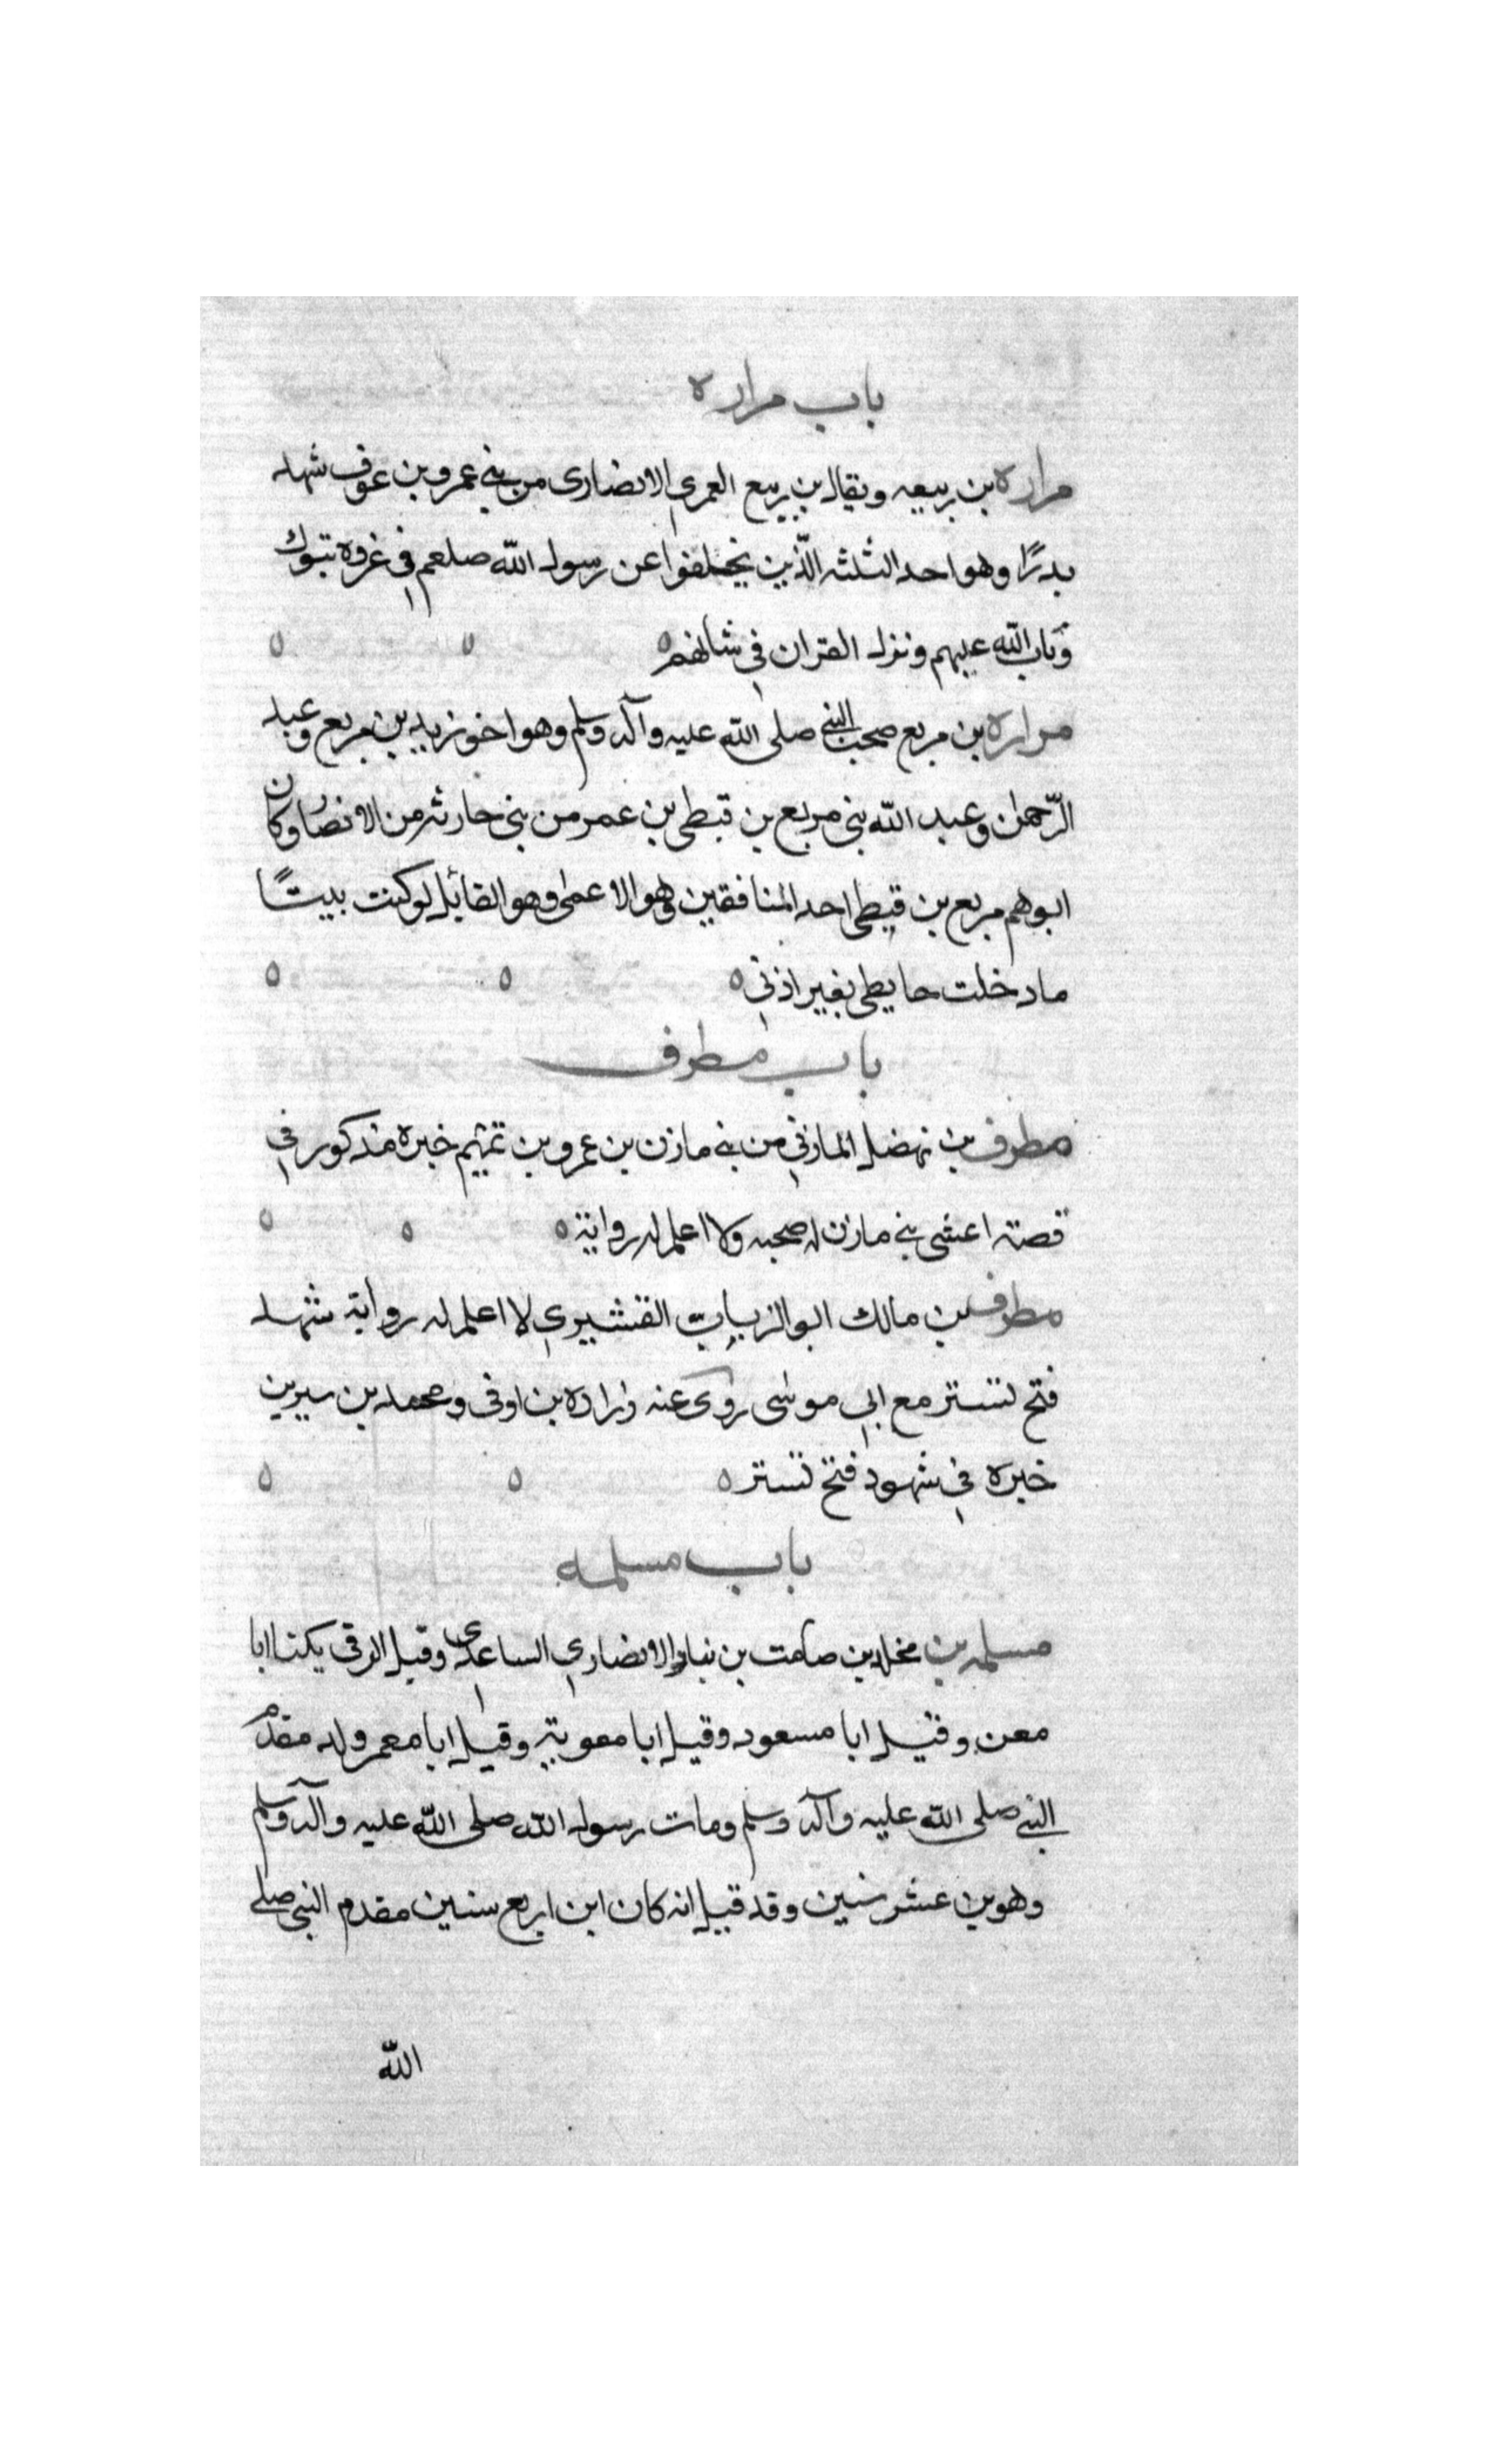 باب مراره
مراره بن ربيعه ويقال بن ربيع العمري الانصارى من بني عمرو بن عوف شهد
بدرًا وهو احد الثلثه الّذين تخلفوا عن رسول الله صلعم في غزوه تبوك
وتاب الله عليهم ونزل القران في شانهم
مراره بن مربع صحب النبي صلى الله عليه وآله وسلم وهو اخو زيد بن مربع وعبد
الرّحمن وعبد الله بنى مربع بن قبطى بن عمر من بنى حارثه من الانصار وكان
ابوهم مربع بن قيطى احد المنافقين وهو الاعمى وهو القائل لو كنت بيتًا
ما دخلت حايطى بغير اذنى
باب مطرف
مطرف بن نهضل المازني من بني مازن بن عمرو بن تميم خبره مذكور في
قصة اعشى بني مازن له صحبه ولا اعلم له رواية
مطرف بن مالك ابو الزبيات القشيري لا اعلم له رواية شهد
فتح تستر مع ابي موسى روى عنه زراره بن اوفى ومحمد بن سيرين
خبره في شهود فتح تستر
باب مسلمه
مسلمه بن مخلد بن صامت بن نيار الانصاري الساعدى وقيل الزرقى يكنا ابا
معن وقيل ابا مسعود وقيل ابا معوية وقيل ابا معمر ولد مقدم
النبي صلى الله عليه وآله وسلم ومات رسول الله صلى الله عليه وآله وسلم
وهو بن عشر سنين وقد قيل انه كان ابن اربع سنين مقدم النبي صلى
الله